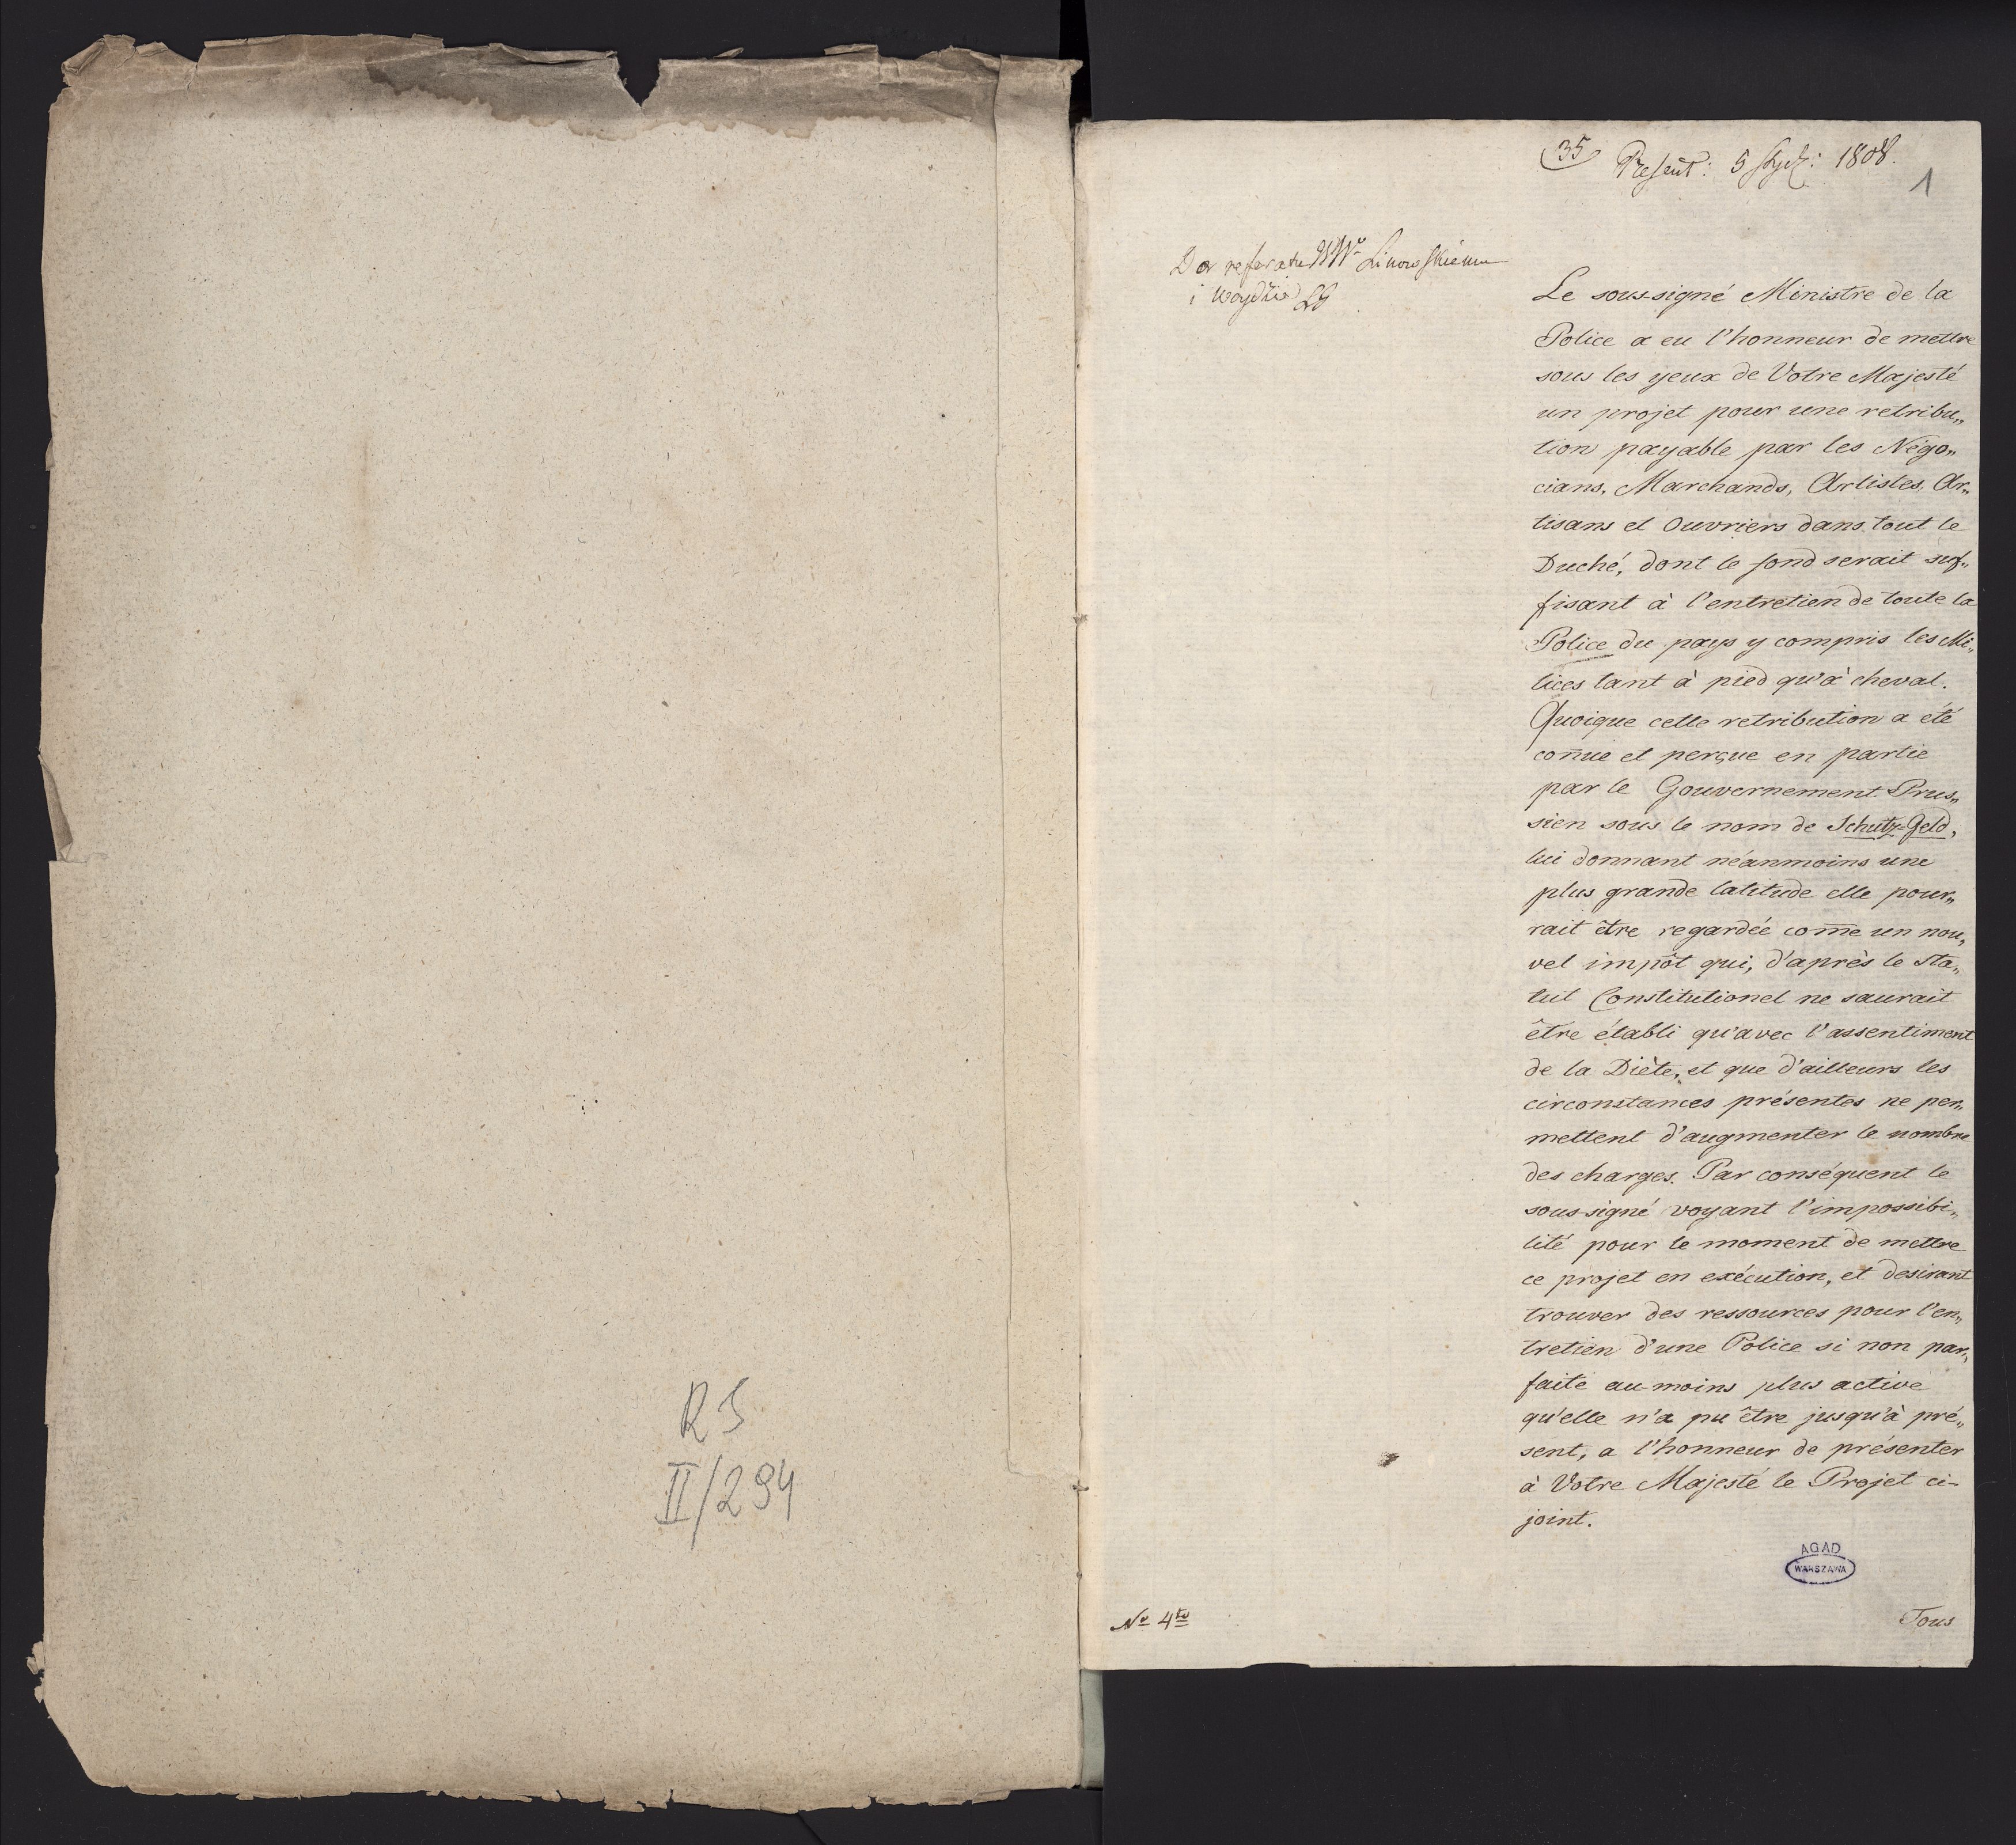 R S
II/294
35 Present: 5 Stycz: 1808.
1
Do referatu WW Linowskiemu
i
Le sous-signé Ministre de la
Police a eu l'honneur de mettre
sous les yeux de Votre Majesté
un projet pour une retribu„
tion payable par les Négo„
cians, Marchands, Artistes, Ar„
tisans et Ouvriers dans tout le
Duché, dont le fond serait suf„
fisant à l'entretien de toute la
Police du pays y compris les Mi„
lices tant à pied qu'à cheval.
Quoique cette retribution a été
coñue et perçue en partie
par le Gouvernement Prus„
sien sous le nom de Schutz=Geld,
lui donnant néanmoins une
plus grande latitude elle pour„
rait être regardée com̄e un nou„
vel impôt qui, d'après le Sta„
tut Constitutionel ne saurait
être établi qu'avec l'assentiment
de la Diète, et que d'ailleurs les
circonstances présentes ne per„
mettent d'augmenter le nombre
des charges. Par conséquent le
sous-signé voyant l'impossibi„
lité pour le moment de mettre
ce projet en exécution, et desirant
trouver des ressources pour l'en„
tretien d'une Police si non par„
faite au-moins plus active
qu'elle n'a pu être jusqu'à pré„
sent, a l'honneur de présenter
à Votre Majesté le Projet ci-
joint.
AGAD
WARSZAWA
No 4to
Tous